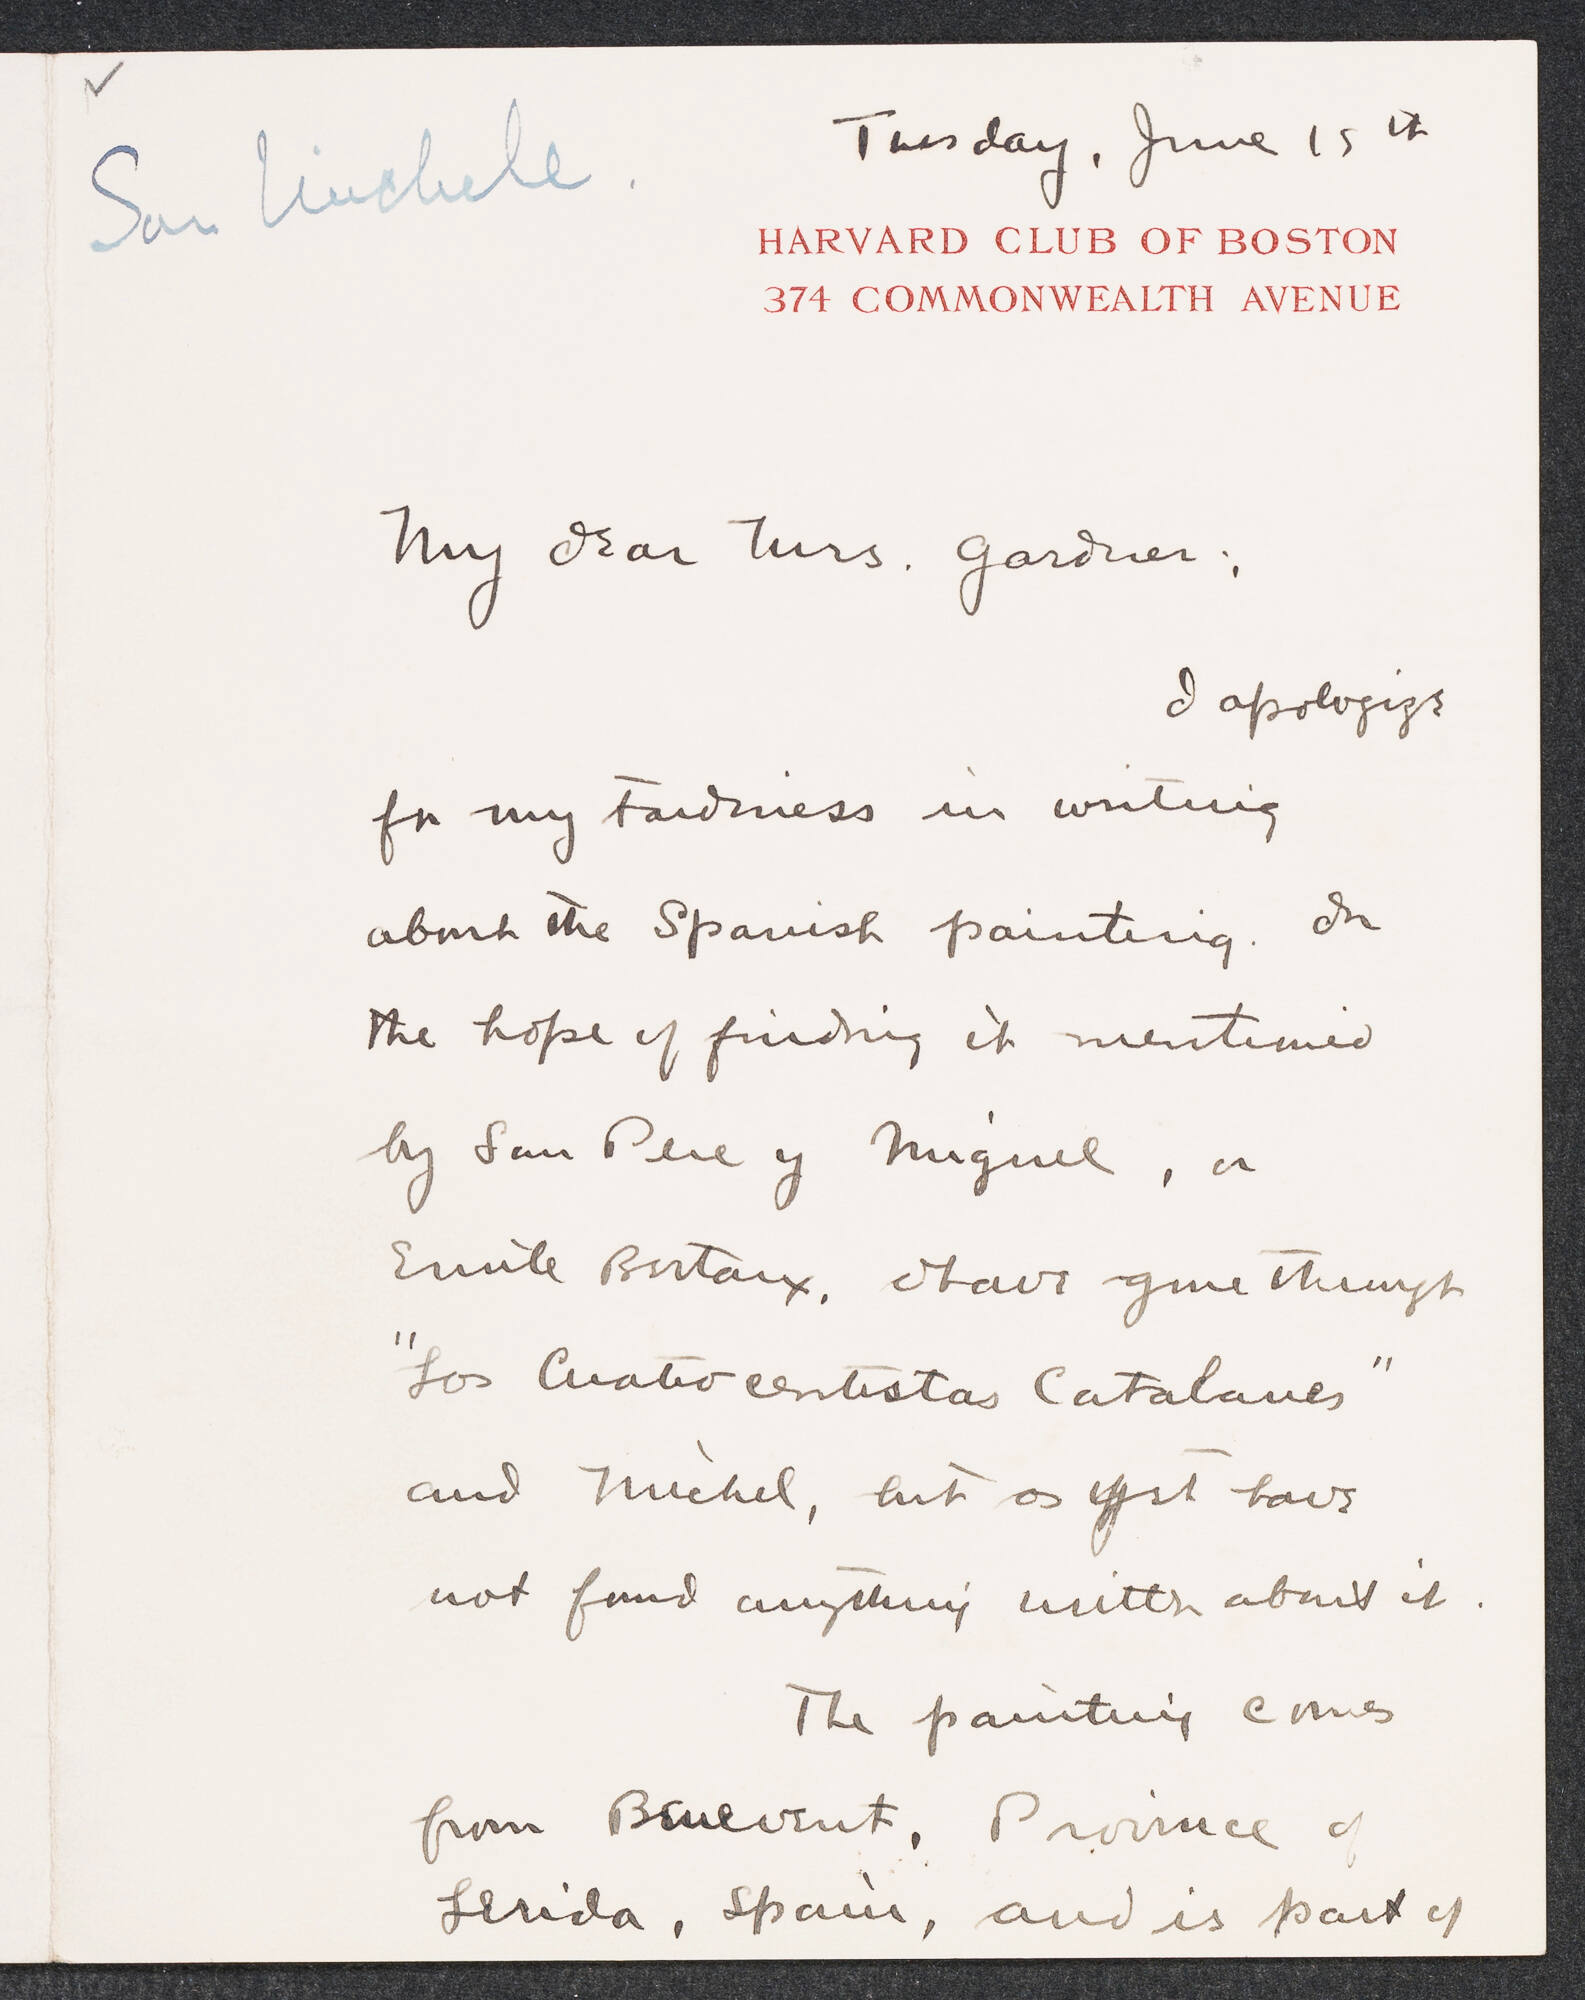 San Michele.
Tuesday, June 15th
HARVARD CLUB OF BOSTON
374 COMMONWEALTH AVENUE
My dear Mrs. Gardner;
I apologize
for my tardiness in writing
about the Spanish painting. In
the hope of finding it mentioned
by San Pere y Miguel, or
Emile Bertaux, I have gone through
"Los Cuatrocentistas Catalanes"
and Michel, but as yet have
not found anything written about it.
The painting comes
from Benevent, Province of
Lerida, Spain, and is part of